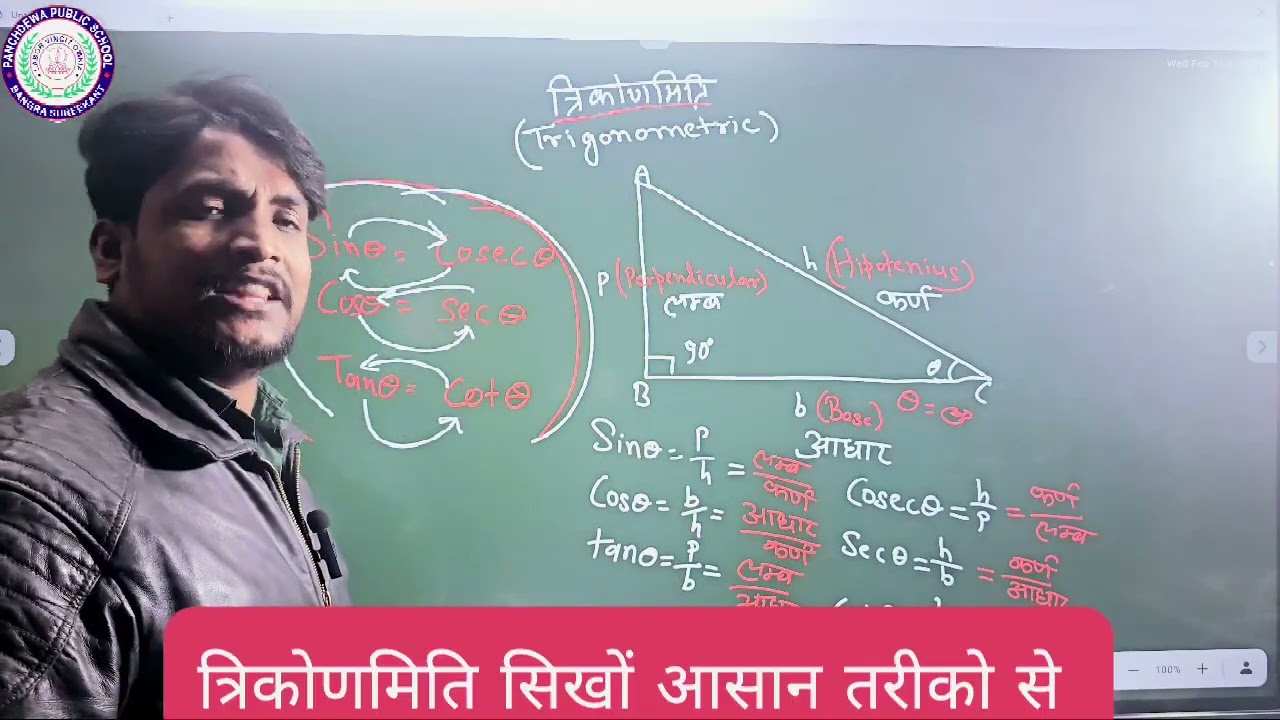 PANCHDEWA PUBLIC SCHOOL
LABOR VINCIT OMNIA
Wed Feb
त्रिकोणमिति
(Trigonometric)
A
Sinθ = Cosecθ
Cosθ = Secθ
Tanθ = Cotθ
P (Perpendicular)
लम्ब
h (Hipotenius)
कर्ण
90°
θ
B
C
b (Base)
आधार
Sinθ = P/h = लम्ब/कर्ण
Cosθ = b/h = आधार/कर्ण
tanθ = P/b = लम्ब/आधार
Cosecθ = h/P = कर्ण/लम्ब
Secθ = h/b = कर्ण/आधार
त्रिकोणमिति सिखों आसान तरीको से
100%